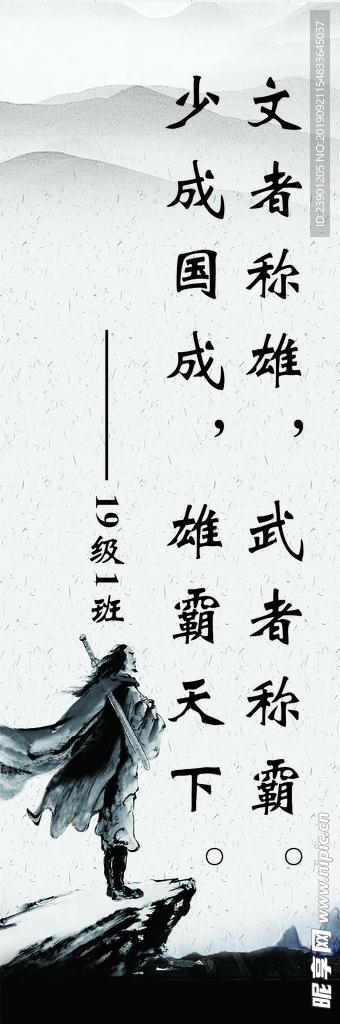 文者称雄，武者称霸。
少成国成，雄霸天下。
——19级1班
ID:23901205 NO:20190921154833645037
昵享网 www.nipic.cn